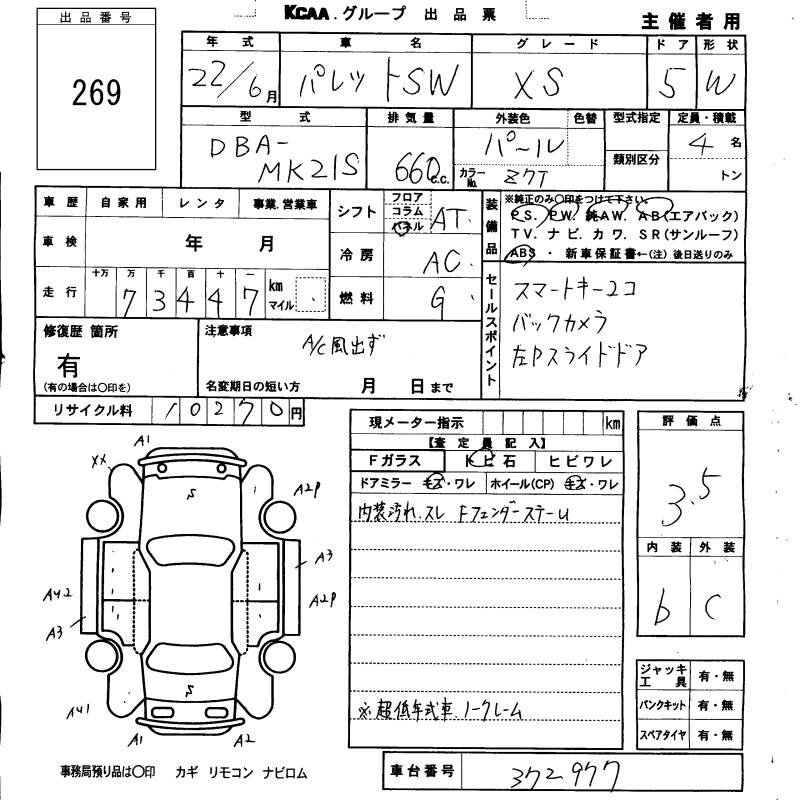 KCAA.グループ 出品票
主催者用
出品番号
269
年式 車名 グレード ドア 形状
22/6月 パレットSW XS 5 W
型式 排気量 外装色 色替 型式指定 定員・積載
DBA-
MK21S
660 c.c.
パール
カラーNo. ZKT
類別区分
4名
トン
車歴 自家用 レンタ 事業.営業車
車検 年 月
走行 十万 万 千 百 十 一
73447 km
マイル
シフト フロア コラム パネル AT.
冷房 AC
燃料 G
装備品
※純正のみ〇印をつけて下さい。
PS. PW. 純AW. AB(エアバック)
TV. ナビ. カワ. SR(サンルーフ)
ABS ・ 新車保証書←(注)後日送りのみ
セールスポイント
スマートキー2コ
バックカメラ
左Pスライドドア
修復歴 箇所
有
(有の場合は〇印を)
注意事項
A/C風出ず
名変期日の短い方 月 日まで
リサイクル料 10270円
現メーター指示 km
【査定員記入】
Fガラス トビ石 ヒビワレ
ドアミラー キズ・ワレ ホイール(CP) キズ・ワレ
内装汚れ.スレ Fフェンダーステーム
※.超低年式車.ノークレーム
評価点
3.5
内装 外装
b C
ジャッキ工具 有・無
パンクキット 有・無
スペアタイヤ 有・無
車台番号 372977
A1
XX
A2P
S
A3
AU2
A2P
A3
S
AU1
A1
A2
事務局預り品は〇印 カギ リモコン ナビロム